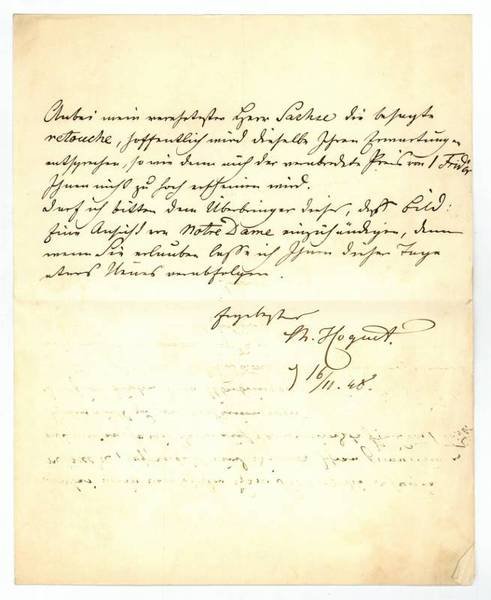 Anbei mein verehrtester Herr Sachse die besagte
retouche, hoffentlich wird dieselbe Ihren Erwartungen
entsprechen, so wie denn auch der verabredete Preis von 1 Frdr
Ihnen nicht zu hoch erscheinen wird.
Darf ich bitten dem Überbringer dieses, das Bild:
Eine Ansicht von Notre Dame einzuhändigen, denn
wenn Sie erlauben lasse ich Ihnen dieser Tage
etwas Neues verabfolgen.
Ergebenster
Ch. Hoguet.
16/11. 48.